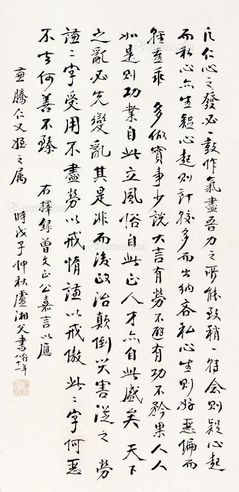 凡仁心之發必一鼓作氣盡吾力之所能致稍一則疑心起
而私心亦生疑心起則計較多而出納吝私心生則好惡偏而
輕重乖 多做實事少說大言有勞不避有功不矜果人人
如是則功業自此立風俗自此正人才亦自此盛矣 天下
之亂必先變亂其是非而後政治顛倒災害從之 勞
謹二字受用不盡勞以戒惰謹以戒傲此二字何惡
不去何善不臻 右擇錄曾文正公嘉言以應
騰仁之屬 時戊子仲秋盧湘父書